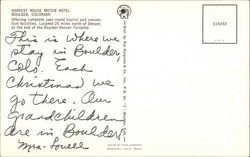 HARVEST HOUSE MOTOR HOTEL
BOULDER, COLORADO
Offering complete year-round tourist and conven-
tion facilities. Located 25 miles north of Denver,
at the end of the Boulder-Denver Turnpike.
This is where we
stay in Boulder,
Colo. Each
Christmas we
go there. Our
grandchildren
are in Boulder,
Mrs. Lowell